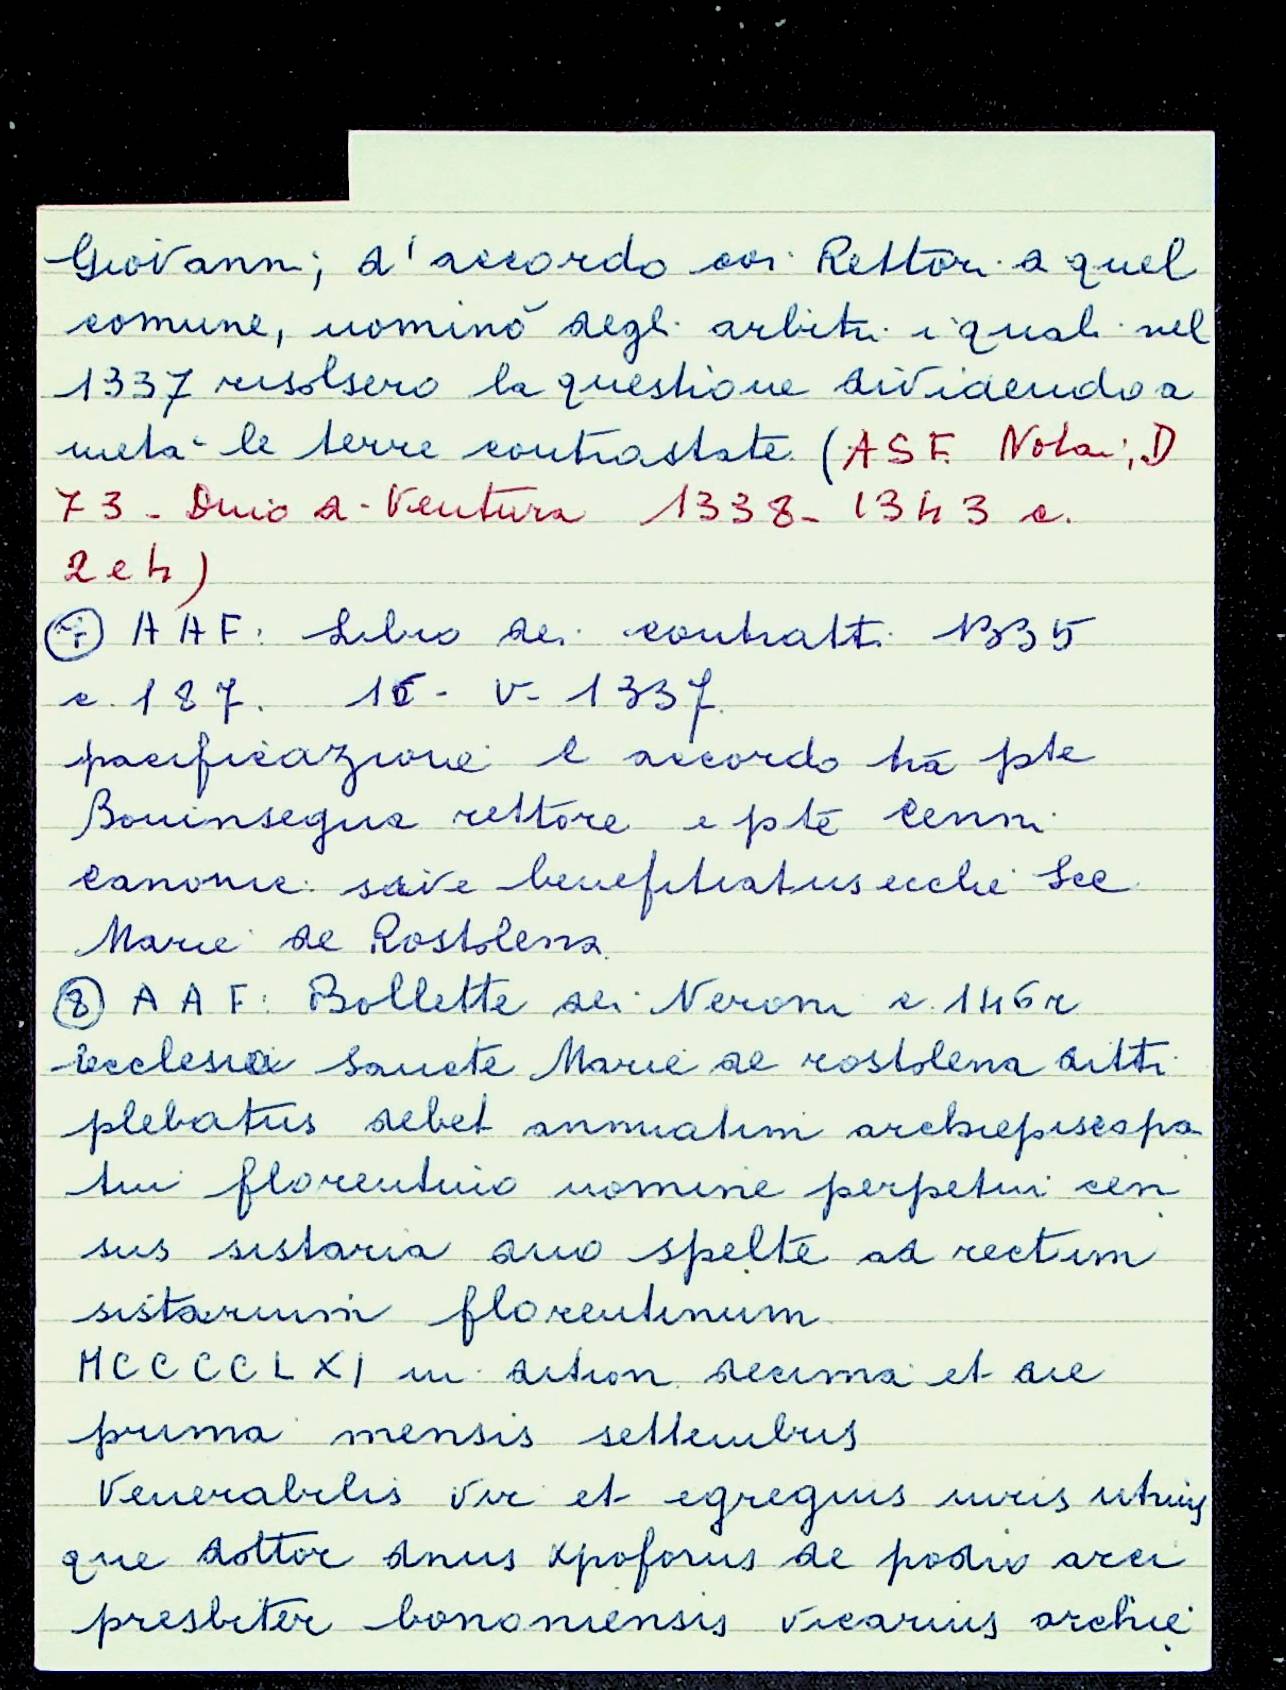 Giovanni, d'accordo coi Rettori di quel
comune, nominò degli arbitri i quali nel
1337 risolsero la questione dividendo a
metà le terre contrastate. (ASF. Notai, D
73 - Dino di Ventura 1338-1343 c.
2 e 4)
⑦ AAF: Libro dei contratti 1335
c. 187. 15- V- 1337.
pacificazione e accordo trà pte
Boninsegna rettore e pte Cenni
canonic. sive benefitiatus ecclie See
Marie de Rostolena.
⑧ AAF: Bollette dei Neroni c. 146r
ecclesia Sancte Marie de rostolena ditti
plebatus debet annuatim archiepiscopa
tui florentino nomine perpetui cen
sus sistaria duo spelte ad rectum
sistarium florentinum
MCCCCLXI in dition decima et die
prima mensis settembris
Venerabilis vir et egregius iuris utrius
que dottor dnus xpoforus de podio arci
presbiter bononiensis vicarius archie